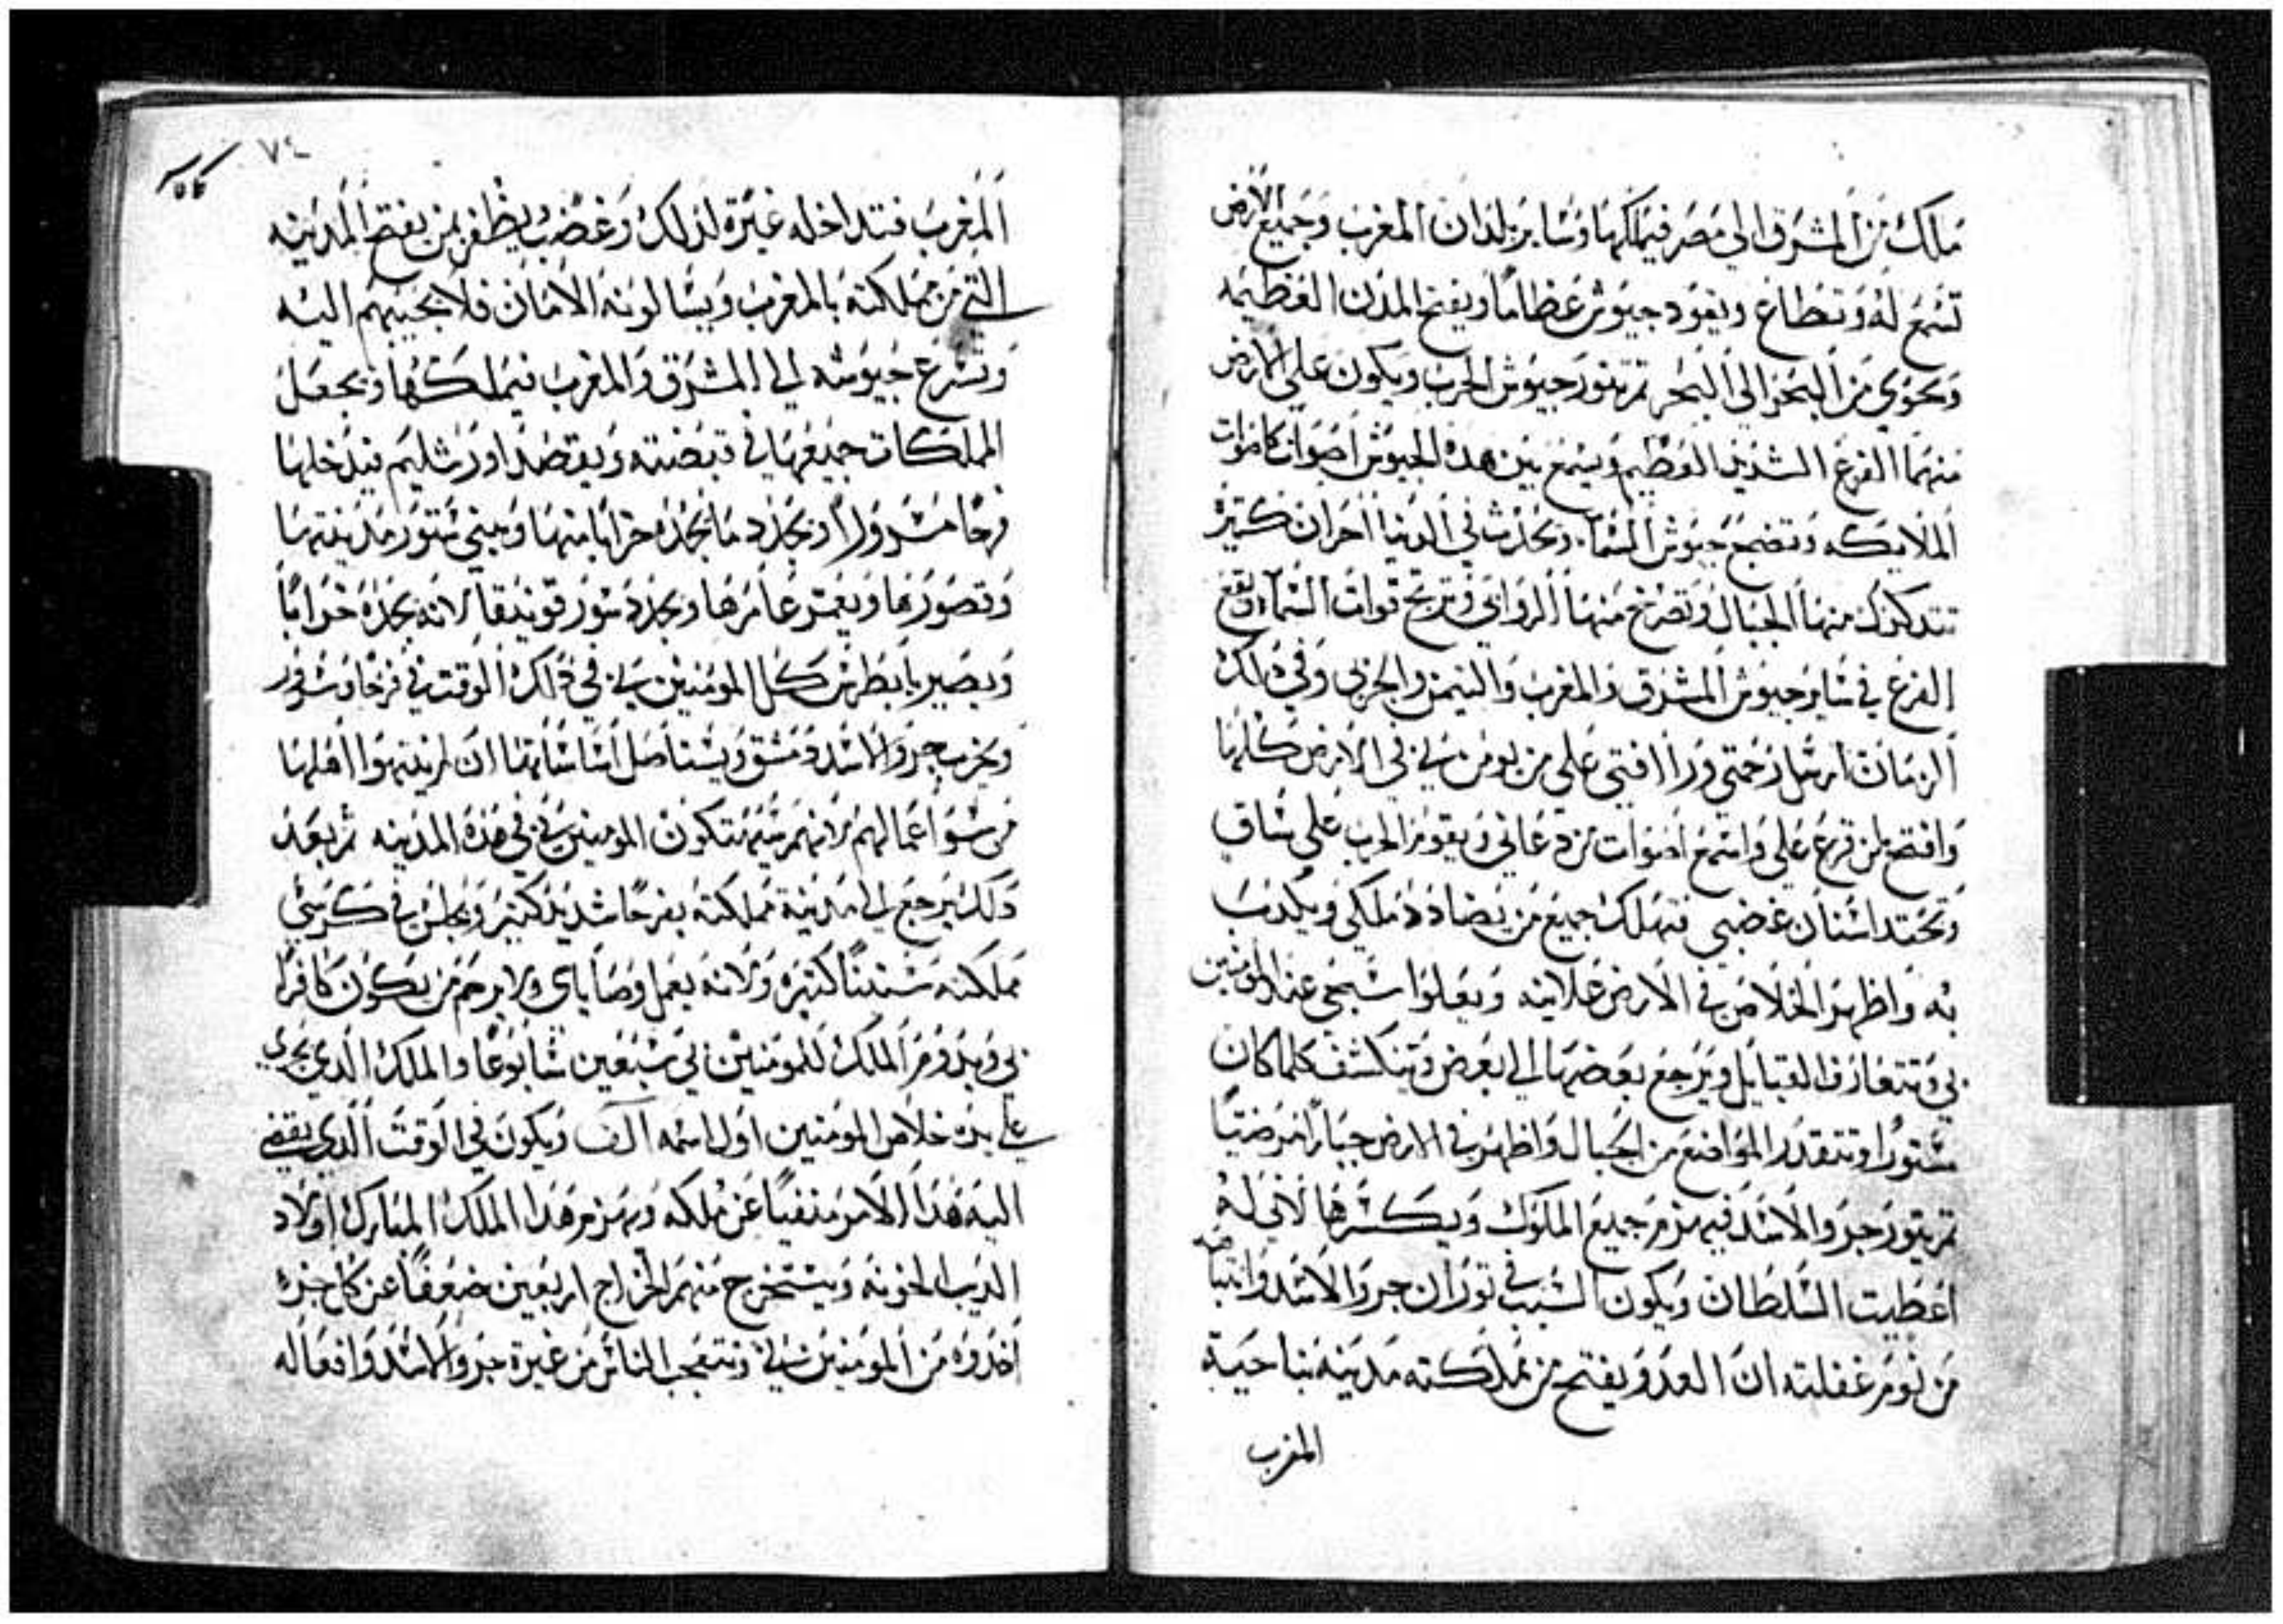 ملك من المشرق الي مصر فيملكها وساير بلدان المغرب وجميع الارض
تسمع له وتطاع ويقود جيوش عظاما ويفتح المدن العظيمه
ويحوي من البحر الي البحر ثم يثور جيوش الحرب ويكون علي الارض
منهما الفزع الشديد العظيم ويسمع بين هذه الجيوش اصوات كاصوات
الملايكه وتضج جيوش السما ويحدث في الدنيا احزان كثير
تتدكدك منها الجبال وتصرخ منها الروابي وترتج قوات السما ويقع
الفزع في ساير جيوش المشرق والمغرب واليمن والبحري وفي ذلك
الزمان ارسل رحمتي ورافتي علي من يومن بي في الارض كلها
وافتح لمن قرع علي واسمع اصوات من دعاني ويقوم الحرب علي ساق
وتحتد اسنان غضبي فتهلك جميع من يضادد ملكي ويكذب
به واظهر الخلاص في الارض علانيه ويعلوا سبحي عند المومنين
بي وتتعارف القبايل ويرجع بعضها الي بعض وتنكشف كلما كان
مستورا وتتقدر المواضع من الجبال واظهر في الارض جبارا مرضيا
ثم يثور جرو الاسد فيهزم جميع الملوك ويكسرها لاني له
اعطيت السلطان ويكون السبب في توران جرو الاسد وانتباهه
من نوم غفلته ان العدو يفتح من مملكته مدينه بناحية
المغرب
٧٤
المغرب فتداخله غيرة لذلك وغضب ويظفر بمن يفتح المدينه
التي من مملكته بالمغرب ويسالونه الامان فلا يجيبهم اليه
وتسرع جيوشه الي المشرق والمغرب فيملكها ويجعل
المملكات جميعها في قبضته ويقصد اورشليم فيدخلها
فرحا مسرورا ويجدد ما يجده خرابا منها ويبني ستور مدينتها
وقصورها ويعمر عامرها ويجدد سور قونيقا لانه يجده خرابا
ويصير يا بطرس كل المومنين بي في ذلك الوقت في فرحا وسرور
ويخرب جرو الاسد دمشق ويستاصل اساساتها ان لم ينتهوا اهلها
من سو اعمالهم لانهم سيهتكون المومنين بي في هذه المدينه ثم بعد
ذلك يرجع الي مدينة مملكته بفرحا شديد كبير ويجلس في كرسي
مملكته سنينا كثيره ولانه يعمل وصاياي ولا يرحم من يكون كافرا
بي ويدوم الملك للمومنين بي سبعين سابوعا والملك الذي يجري
علي يده خلاص المومنين اول اسمه الف ويكون في الوقت الذي يفضي
اليه هذا الامر منفيا عن ملكه ويهزم هذا الملك المبارك اولاد
الديب الخونه ويستخرج منهم الخراج اربعين ضعفا عن كل جزء
اخدوه من المومنين بي وتتعجب الناس من غيرة جرو الاسد وافعاله